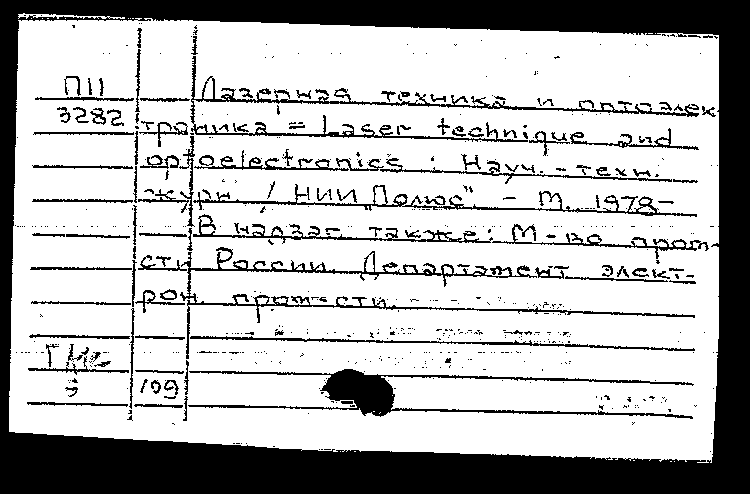 П11
3282
Лазерная техника и оптоэлек-
троника = Laser technique and
optoelectronics : Науч.-техн.
журн. / НИИ "Полюс". - М. 1978-
В надзаг. также: М-во пром-
сти России. Департамент элект-
рон. пром-сти.
109